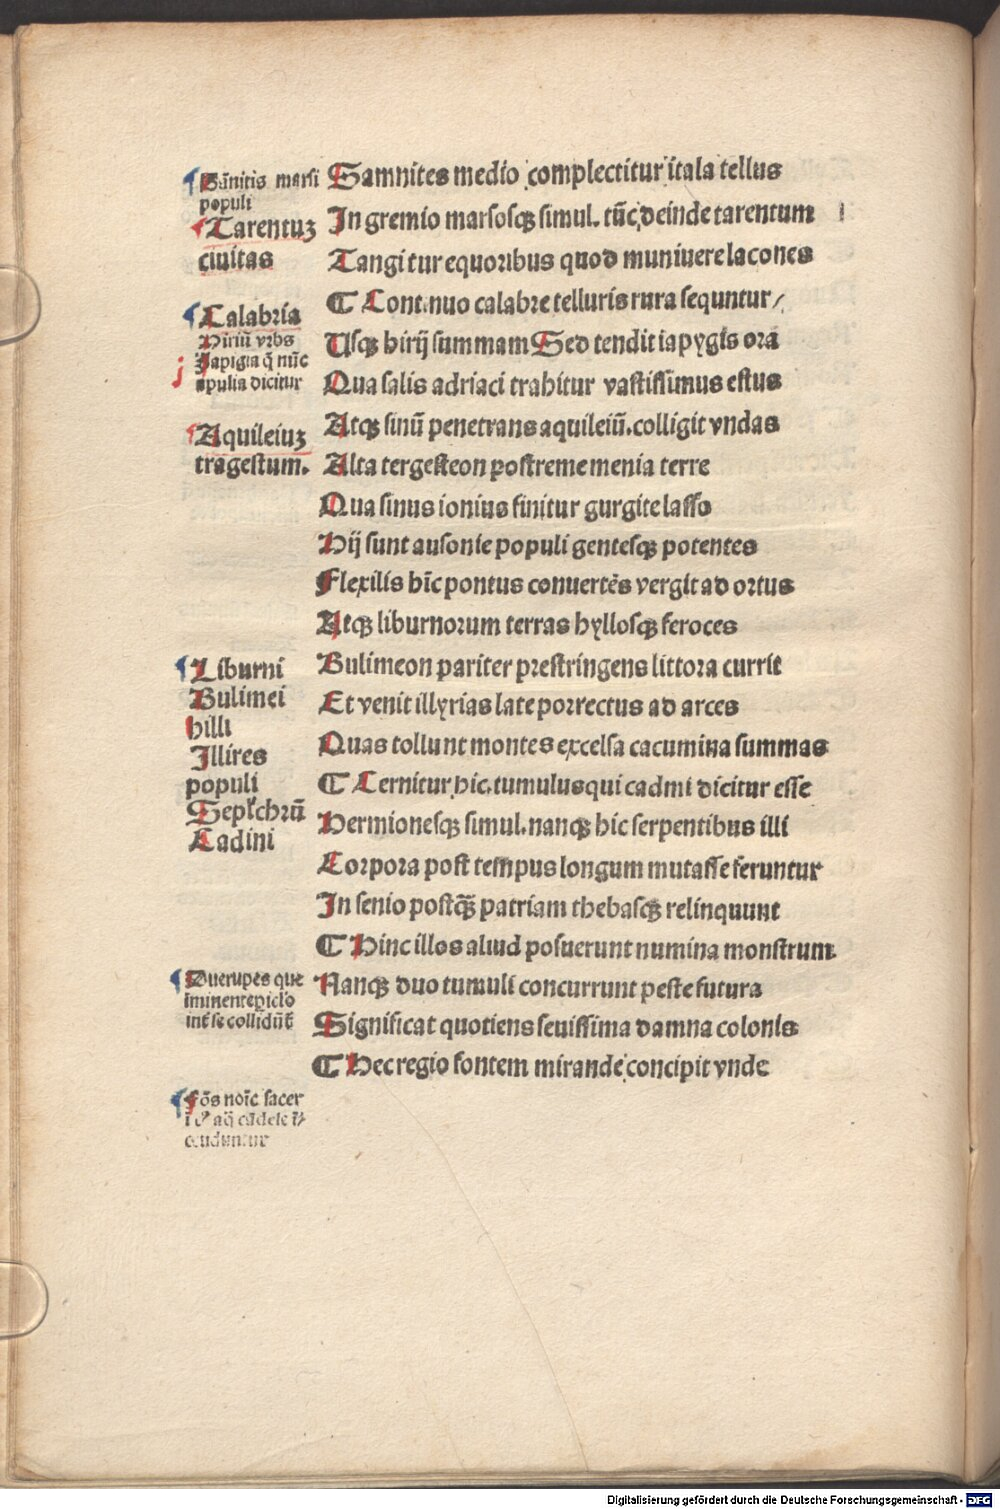 Samnites medio complectitur itala tellus
In gremio marsosqꝫ simul. tūc deinde tarentum
Tangitur equoribus quod muniuere lacones
¶ Continuo calabre telluris rura sequntur/
Usqꝫ hirij summam Sed tendit iapygis ora
Qua salis adriaci trahitur vastissimus estus
Atqꝫ sinū penetrans aquileiū. colligit vndas
Alta tergesteon postreme menia terre
Qua sinus ionius finitur gurgite lasso
Hij sunt ausonie populi gentesqꝫ potentes
Flexilis hīc pontus conuertēs vergit ad ortus
Atqꝫ liburnorum terras hyllosqꝫ feroces
Bulimeon pariter prestringens littora currit
Et venit illyrias late porrectus ad arces
Quas tollunt montes excelsa cacumina summas
¶ Cernitur hic. tumulus qui cadmi dicitur esse
Hermionesqꝫ simul. nanqꝫ hic serpentibus illi
Corpora post tempus longum mutasse feruntur
In senio postqꝫ̄ patriam thebasqꝫ relinquunt
¶ Hinc illos aliud posuerunt numina monstrum.
Nanqꝫ duo tumuli concurrunt peste futura
Significat quotiens seuissima damna colonis
¶ Hec regio fontem mirande concipit vnde
Sānitis marsi
populi
Tarentuꝫ
ciuitas
Calabria
Hiriū vrbs
Iapigia q̄ nūc
apulia dicitur
Aquileiuꝫ
tragestum.
Liburni
Bulimei
hilli
Illires
populi
Sepl'chrū
Cadini
Due rupes que
iminente ꝑiclo
int̄ se collidūt̄
Fōs noīe sacer
Digitalisierung gefördert durch die Deutsche Forschungsgemeinschaft - DFG